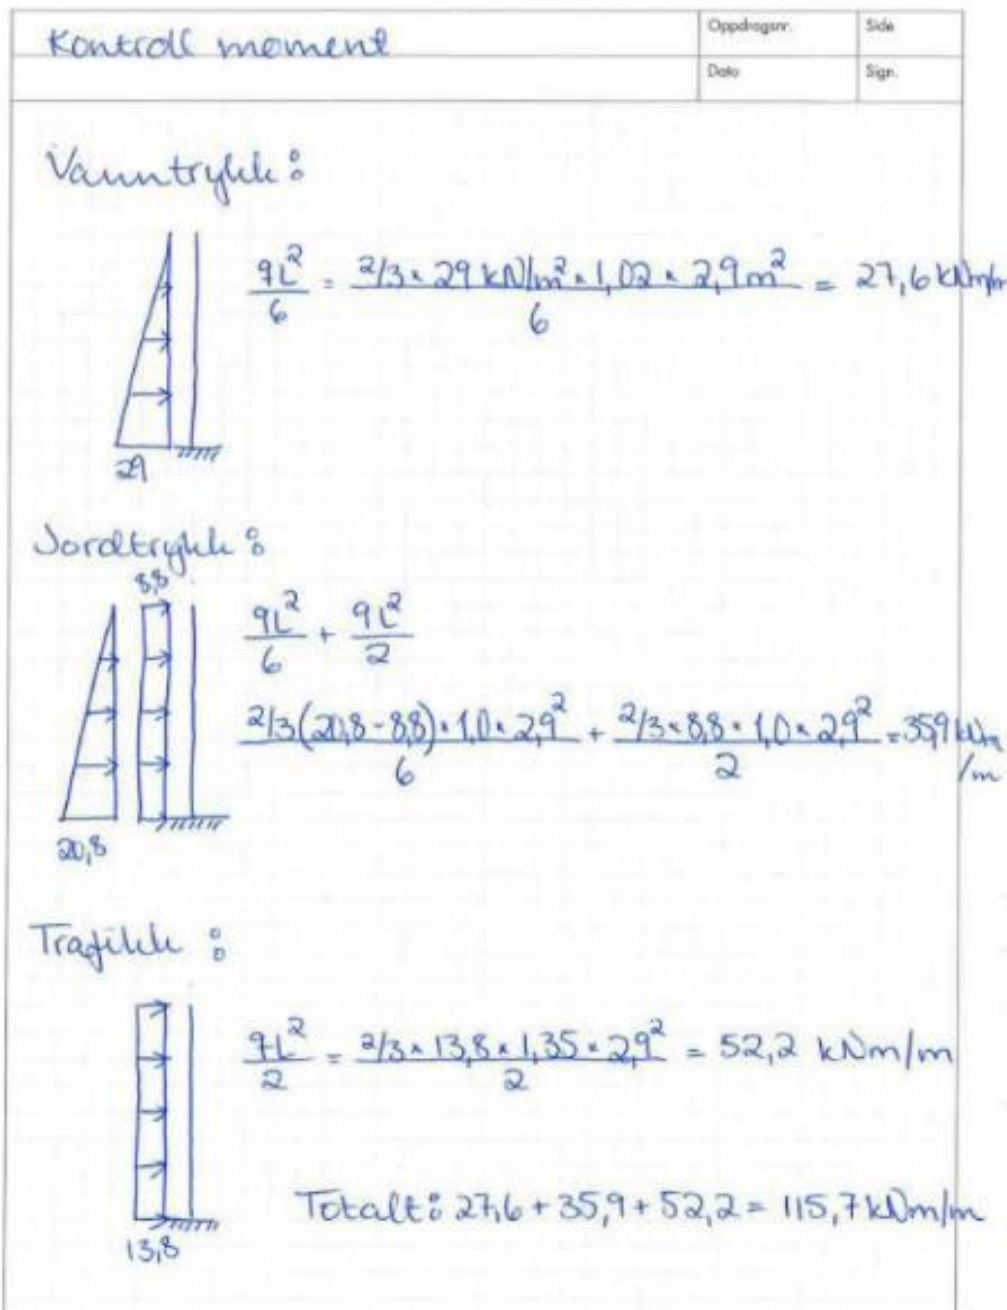 Kontroll moment
Oppdragsnr.
Side
Dato
Sign.
Vanntrykk:
qL²/6 = 2/3 × 29 kN/m² × 1,02 × 2,9m²/6 = 27,6 kNm/m
29
Jordtrykk:
8,8
qL²/6 + qL²/2
2/3(20,8-8,8) × 1,0 × 2,9²/6 + 2/3 × 8,8 × 1,0 × 2,9²/2 = 35,9 kNm/m
20,8
Trafikk:
qL²/2 = 2/3 × 13,8 × 1,35 × 2,9²/2 = 52,2 kNm/m
Totalt: 27,6 + 35,9 + 52,2 = 115,7 kNm/m
13,8